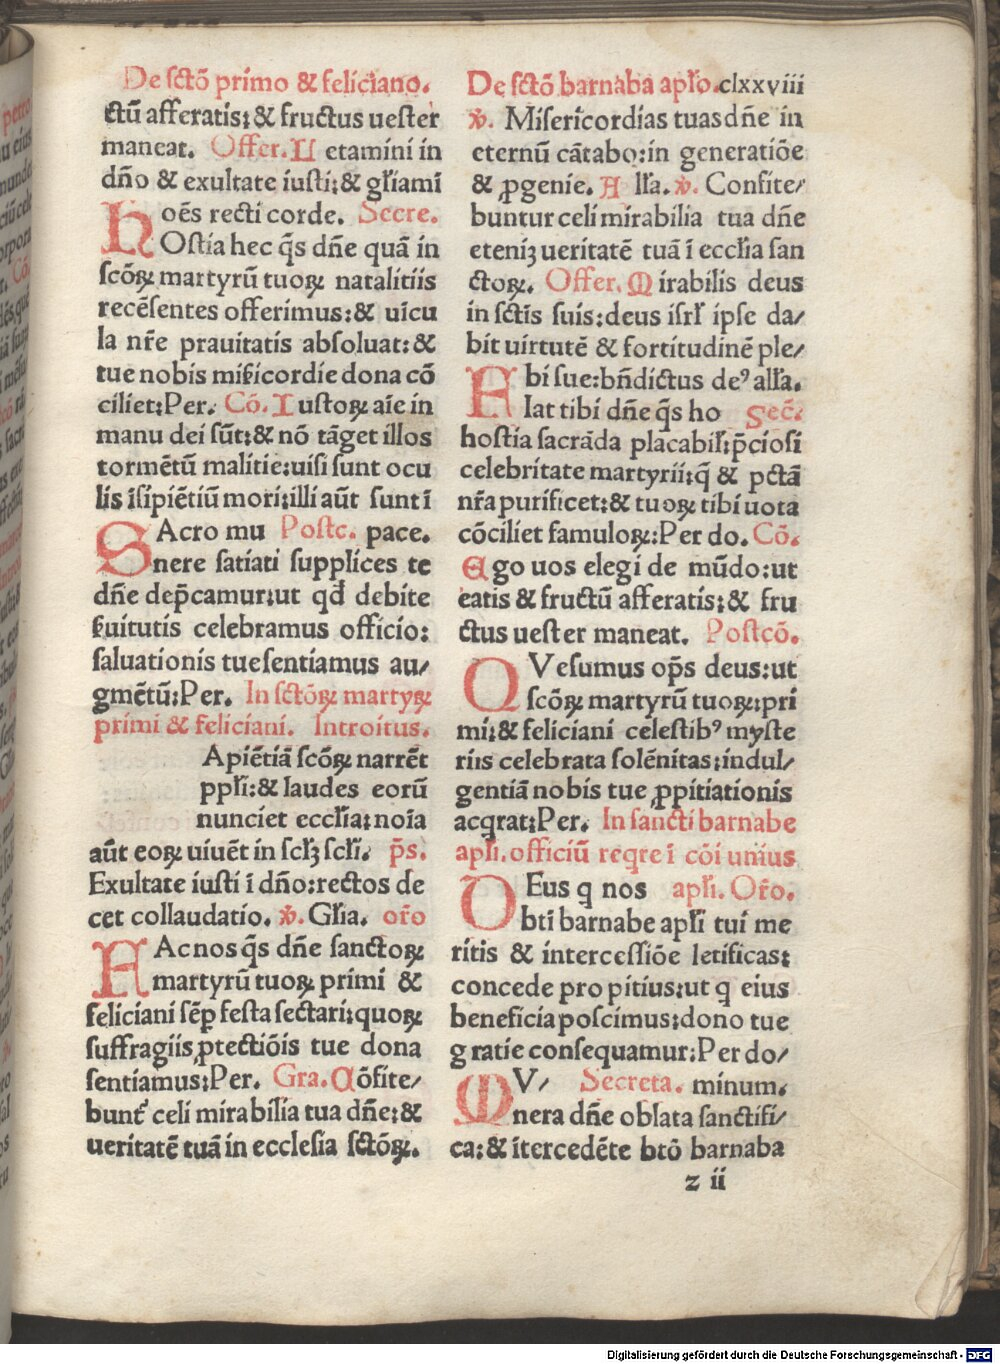 De sctō primo & feliciano.
ctū afferatis: & fructus uester
maneat. Offer. L etamini in
dño & exultate iusti: & gl̄iami
oēs recti corde. Secre.
HOstia hec q̄s dñe quā in
scōꝝ martyrū tuoꝝ natalitiis
recēsentes offerimus: & uicu
la nr̄e prauitatis absoluat: &
tue nobis mīcordie dona cō
ciliet: Per. Cō. I ustoꝝ aīe in
manu dei sūt: & nō tāget illos
tormētū malitie: uisi sunt ocu
lis īsipiētiū mori: illi aūt sunt ī
SAcro mu Postc. pace.
nere satiati supplices te
dñe dep̄camur: ut qđ debite
ſuitutis celebramus officio:
saluationis tue sentiamus au/
gmētū: Per. In sctōꝝ martyꝝ
primi & feliciani. Introitus.
Apiētiā scōꝝ narrēt
ppl̄i: & laudes eorū
nunciet eccl̄ia: noīa
aūt eoꝝ uiuēt in scl̄ꝫ scl̄i. p̄s.
Exultate iusti ī dño: rectos de
cet collaudatio. ꝟ. Gl̄ia. or̄o
FAc nos q̄s dñe sanctoꝝ
martyrū tuoꝝ primi &
feliciani sēꝑ festa sectari: quoꝝ
suffragiis ꝓtectiōis tue dona
sentiamus: Per. Gra. Cōfite/
bunt̄ celi mirabilia tua dñe: &
ueritatē tuā in ecclesia sctōꝝ.
De sctō barnaba apl̄o. clxxviii
ꝟ. Misericordias tuas dñe in
eternū cātabo: in generatiōe
& ꝓgenie. A ll̄a. ꝟ. Confite/
buntur celi mirabilia tua dñe
eteniꝫ ueritatē tuā ī eccl̄ia san
ctoꝝ. Offer. M irabilis deus
in sctīs suis: deus isrl̄ ipse da/
bit uirtutē & fortitudinē ple/
bi sue: bn̄dictus deꝰ all̄a.
FIat tibi dñe q̄s ho sec̄.
hostia sacrāda placabil̄: p̄ciosi
celebritate martyrii: q̄ & pctā
nr̄a purificet: & tuoꝝ tibi uota
cōciliet famuloꝝ: Per do. Cō.
E go uos elegi de mūdo: ut
eatis & fructū afferatis: & fru
ctus uester maneat. Postcō.
QVesumus op̄s deus: ut
scōꝝ martyrū tuoꝝ: pri
mi: & feliciani celestibꝰ myste
riis celebrata solēnitas: indul/
gentiā nobis tue ꝓpitiationis
acq̄rat: Per. In sancti barnabe
apl̄i. officiū reqre ī cōi unius
DEus q nos apl̄i. Or̄o.
btī barnabe apl̄i tui me
ritis & intercessiōe letificas:
concede propitius: ut q eius
beneficia poscimus: dono tue
gratie consequamur: Per do/
MV/ Secreta. minum.
nera dñe oblata sanctifi/
ca: & ītercedēte btō barnaba
z ii
Digitalisierung gefördert durch die Deutsche Forschungsgemeinschaft - DFG